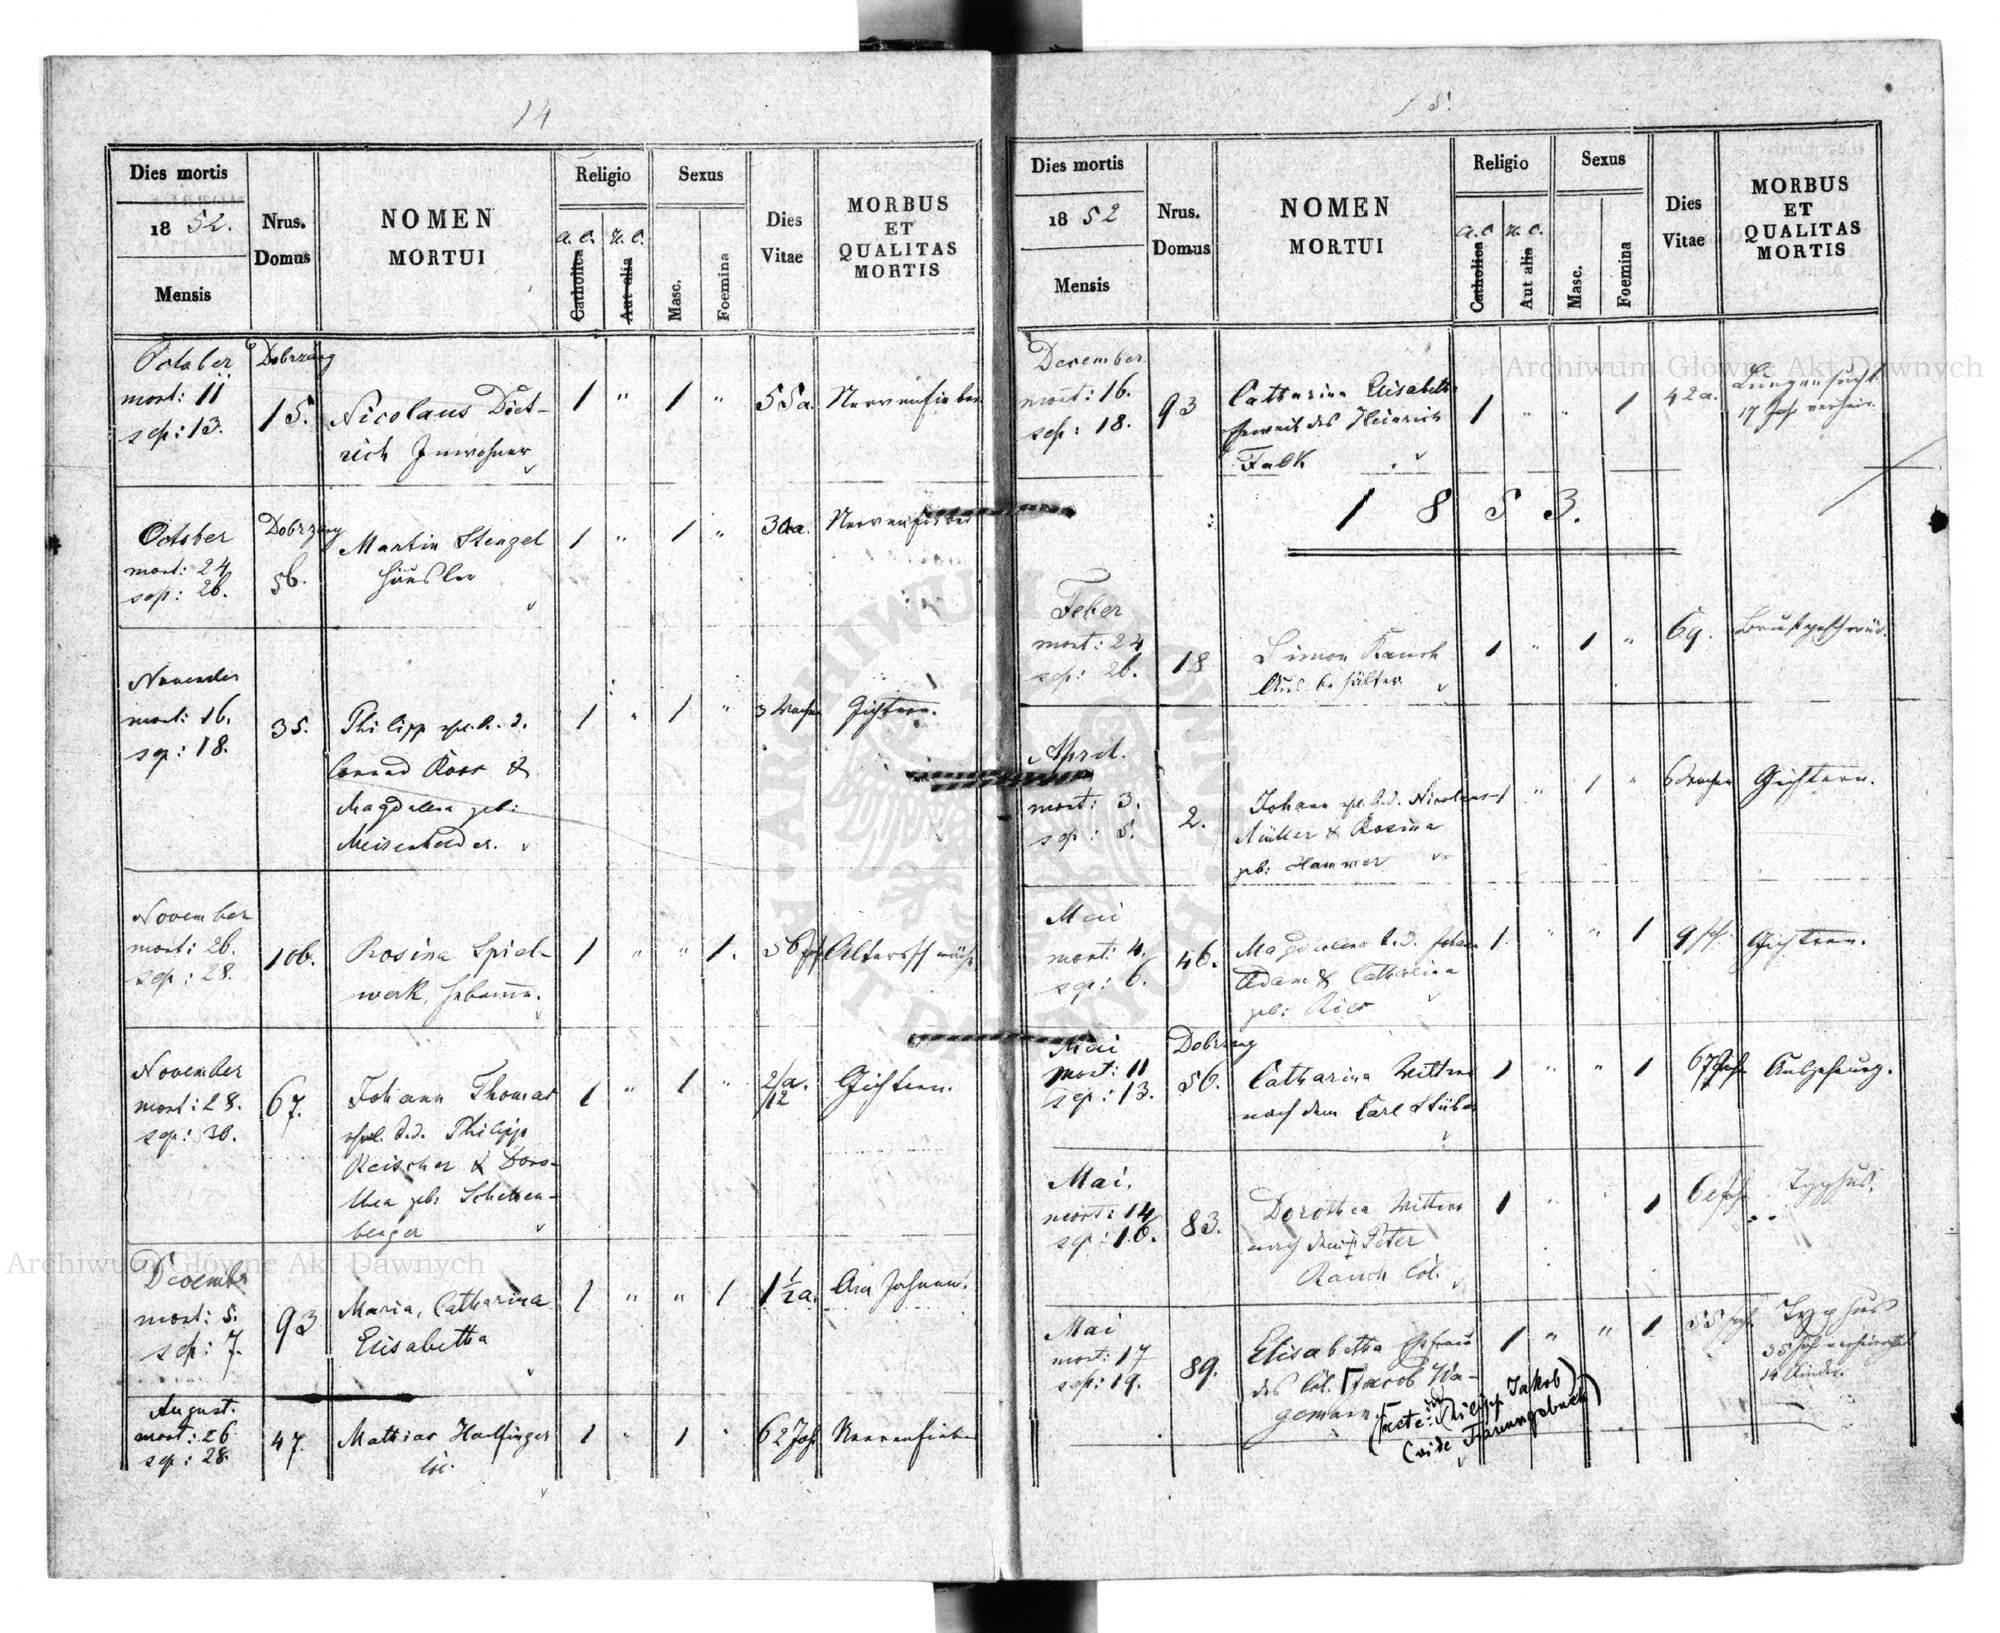 14
Dies mortis
1852.
Mensis
Nrus.
Domus
NOMEN
MORTUI
Religio
a. C.
H. C.
Catholica
Aut alia
Sexus
Masc.
Foemina
Dies
Vitae
MORBUS
ET
QUALITAS
MORTIS
October Dobrzang
mort: 11
sep: 13. 15. Nicolaus Diet- 1 " 1 " 55a. Nervenfieber
rich Inwohner
October Dobrzang
mort: 24 56. Martin Stengel 1 " 1 " Nervenfieber
sep: 26. Häusler
November
mort: 16. 35. Philipp ehel. S. d. 1 " 1 " 3 Wochen Gichtern.
sep: 18. Conrad Roos &
Magdalena geb:
Meisenhelder.
November
mort: 26. 106. Rosina Spiel- 1 " " 1. Altersschwäche
sep: 28. werk, Hebamme.
November
mort: 28. 67. Johann Thomas 1 " 1 " 2/12 a. Gichtern.
sep: 30. ehel. S. d. Philipp
Reischer & Doro-
thea geb: Schellen-
berger
December
mort: 5. 93 Maria, Catharina 1 " " 1 1 1/2 a.
sep: 7. Elisabetha
August.
mort: 26 47. Mathias Halfinger 1 " 1 " 62 Jah Nervenfieber
sep: 28. Col.
15.
Dies mortis
1852
Mensis
Nrus.
Domus
NOMEN
MORTUI
Religio
a. C
H. C.
Catholica
Aut alia
Sexus
Masc.
Foemina
Dies
Vitae
MORBUS
ET
QUALITAS
MORTIS
December
mort: 16. 93 Catharina Elisabeth 1 " " 1 42a. Lungensucht
sep: 18. Eheweib des Heinrich 17 Jah verheir.
Falk
1853.
Feber
mort: 24 18 Simon Rauch 1 " 1 " 69. Brustgeschwür.
sep: 26. Ausbehälter.
April.
mort: 3. 2. Johann ehel. S. d. Nicolaus 1 " 1 " 6 Wochen Gichtern.
sep: 5. Müller & Rosina
geb: Hammer
Mai
mort: 4. 46. Magdalena T. d. Johann 1. " " 1 Gichtern.
sep: 6. Adam & Catharina
geb:
Mai Dobrzang
mort: 11 56. Catharina Wittwe 1 " " 1 67 Jah. Auszehrung.
sep: 13. nach dem Carl Stüber
Mai.
mort: 14 83. Dorothea Wittwe 1 " " 1 Typhus.
sep: 16. nach dem Peter
Rauch Col.
Mai
mort: 17 89. Elisabetha Ehefrau 1 " " 1 55 Jah. Typhus
sep: 19. des Col. Jacob Wa- 35 Jah verheirathet
gemann 14 Kinder.
(recte: Philipp Jakob)
(vide Trauungsbuch)
Archiwum Główne Akt Dawnych
Archiwum Główne Akt Dawnych
ARCHIWUM GŁÓWNE AKT DAWNYCH